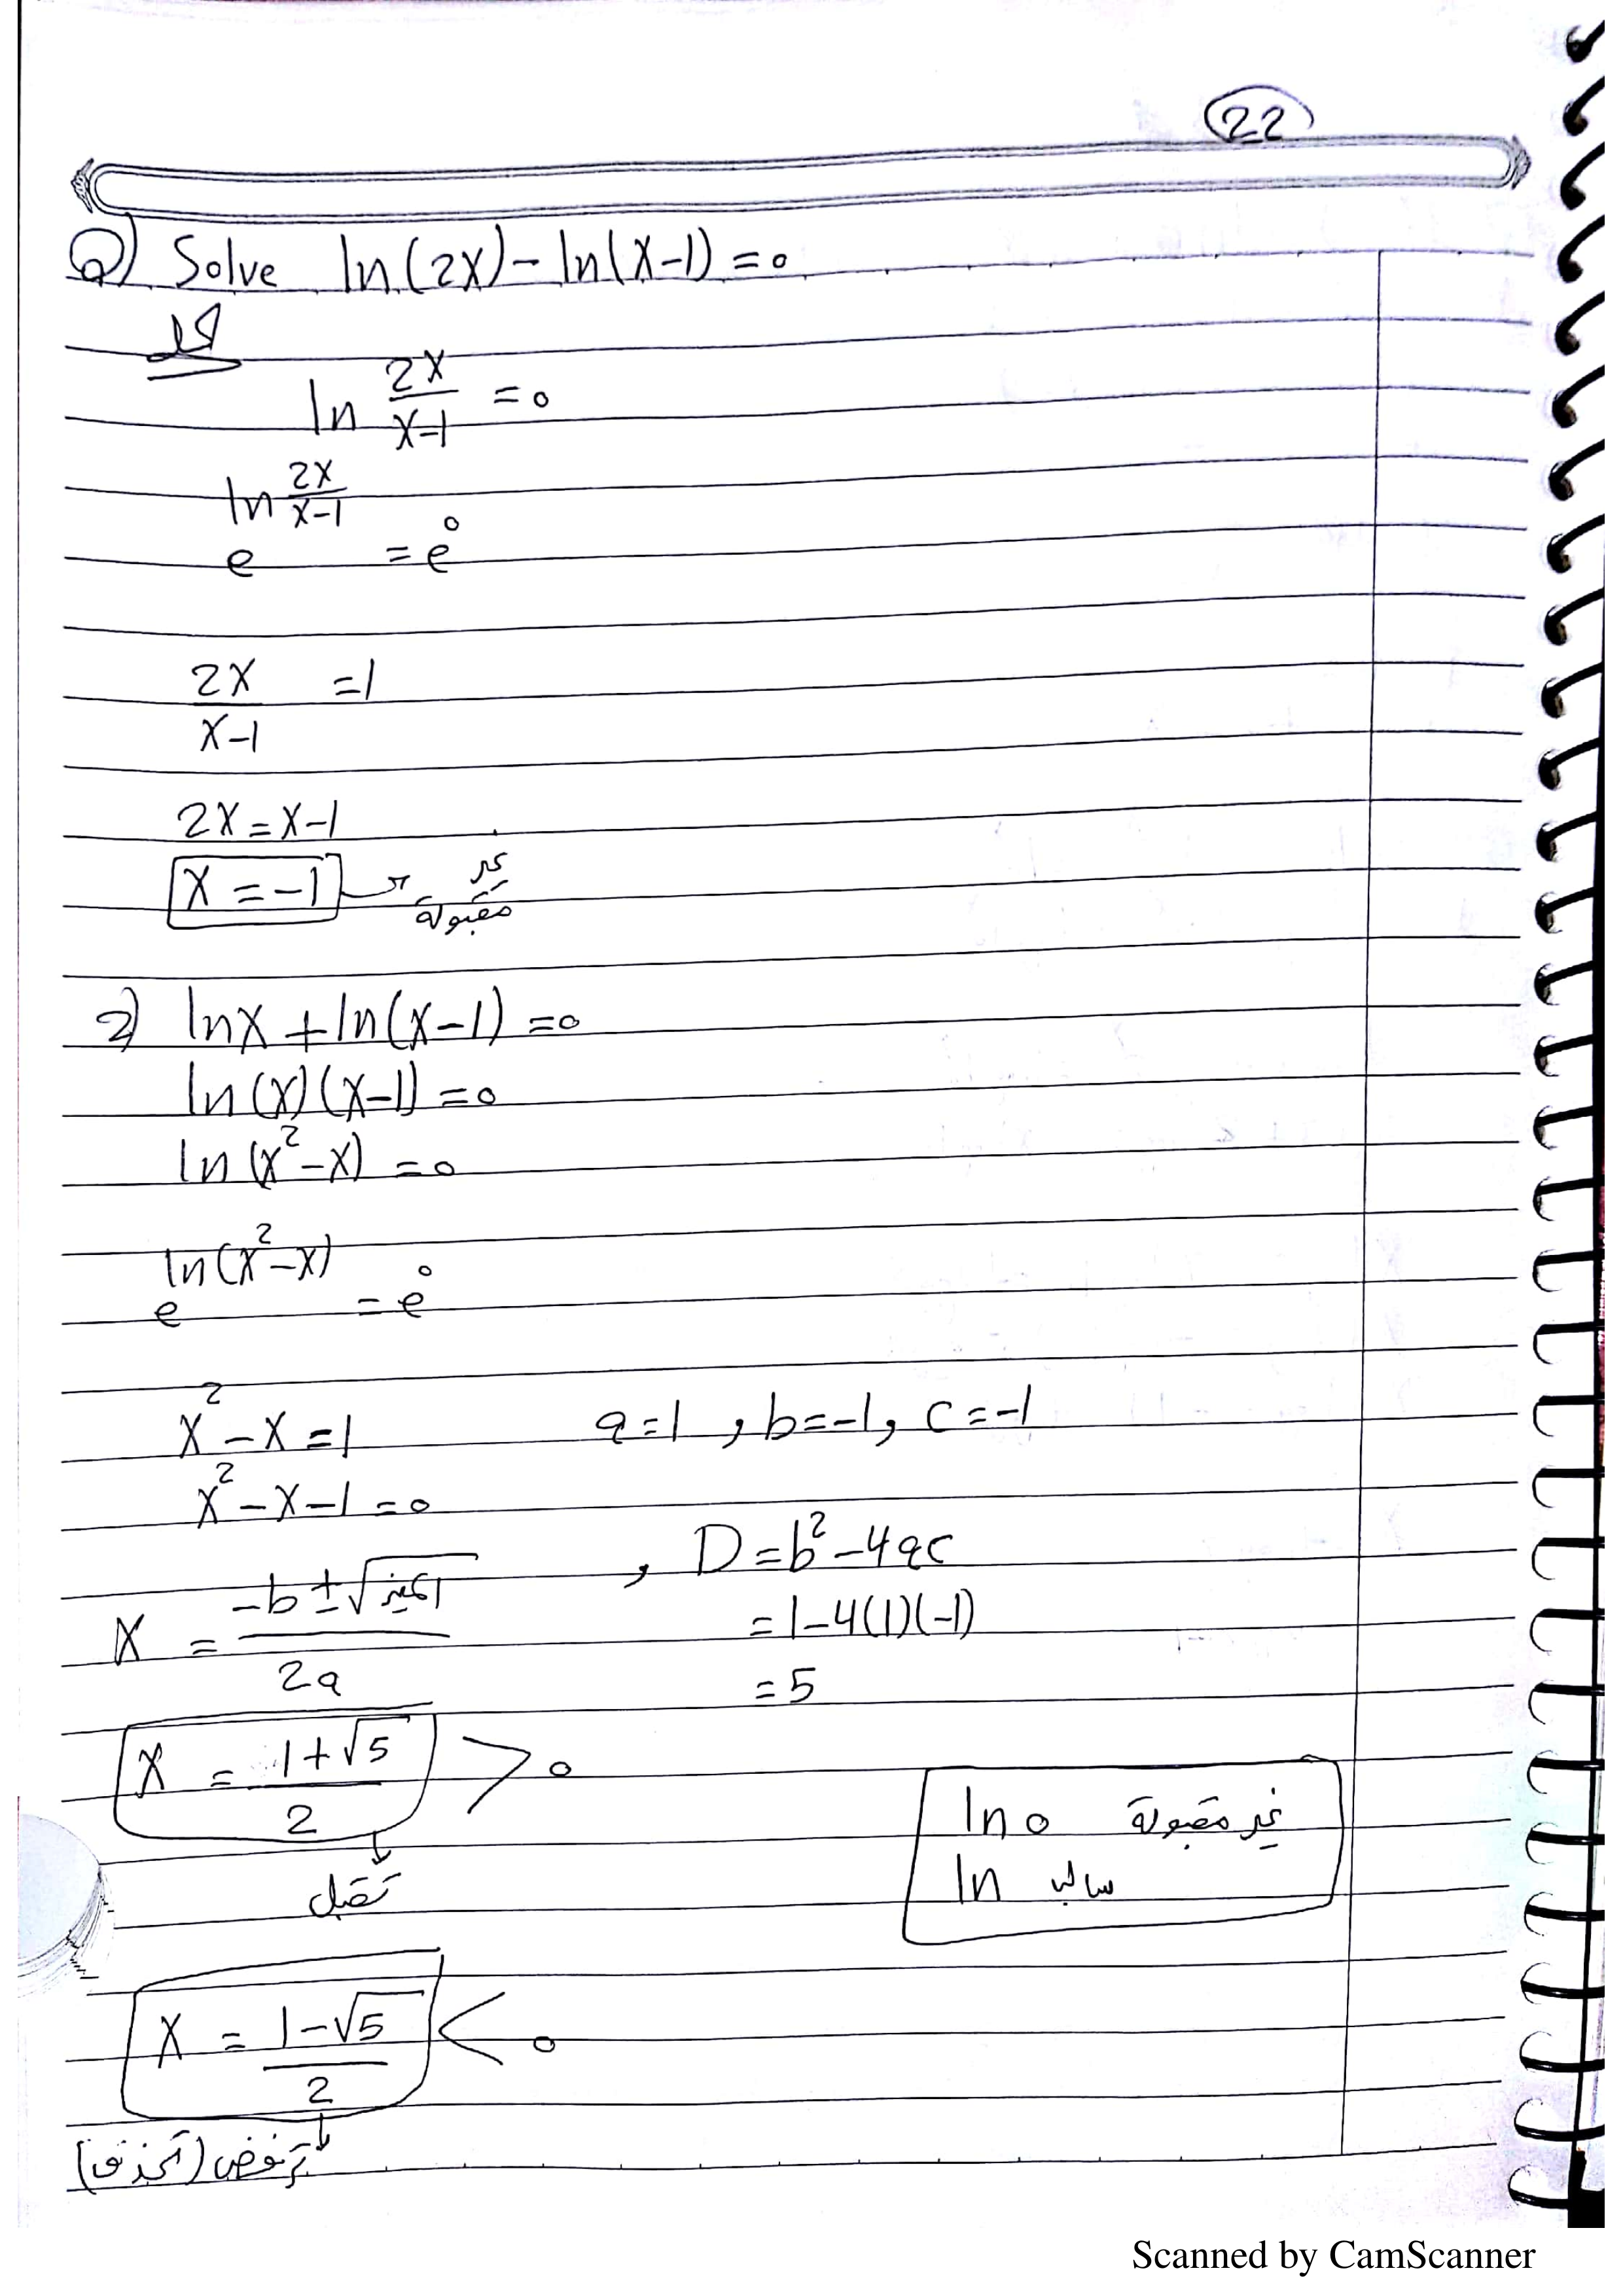 22
Q) Solve ln(2x) - ln(x-1) = 0
الحل
ln 2x/x-1 = 0
e^(ln 2x/x-1) = e^0
2x/x-1 = 1
2x = x-1
x = -1 → غير مقبولة
2) lnx + ln(x-1) = 0
ln(x)(x-1) = 0
ln(x²-x) = 0
e^(ln(x²-x)) = e^0
x²-x = 1    a=1 , b=-1, c=-1
x²-x-1 = 0
x = (-b ± √المميز)/2a , D = b²-4ac
= 1-4(1)(-1)
= 5
x = (1+√5)/2 > 0
تقبل
ln 0 غير مقبولة
ln سالب
x = (1-√5)/2 < 0
ترفض (تحذف)
Scanned by CamScanner